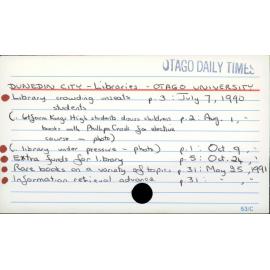 OTAGO DAILY TIMES
DUNEDIN CITY - Libraries - OTAGO UNIVERSITY
Library crowding incenses p.3: July 7, 1990
students
(: 6th form Kings High students douro children p.2: Aug. 1, "
books with Phillipa Cook for elective
course - photo)
(: library under pressure - photo) p.1: Oct. 9, "
Extra funds for library p.5: Oct. 24, "
Rare books on a variety of topics p.31: May 25, 1991
Information retrieval advance p.31: " "
53/C